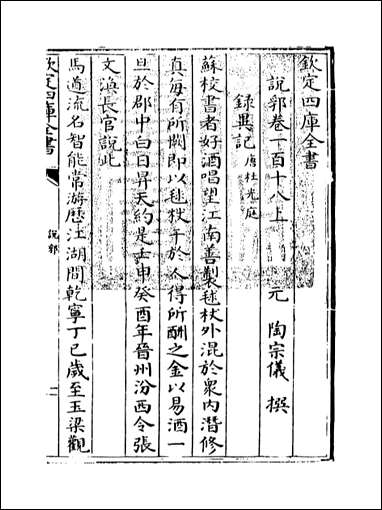 欽定四庫全書
說郛卷一百十八上
元 陶宗儀 撰
錄異記 唐杜光庭
蘇校書者好酒唱望江南善製毬杖外混於衆内潛修
真每有所闕即以毬杖干於人得所酬之金以易酒一
旦於郡中白日昇天約是壬申癸酉年晉州汾西令張
文渙長官說此
馬道流名智能常游歷江湖間乾寧丁巳歲至玉梁觀
欽定四庫全書
說郛